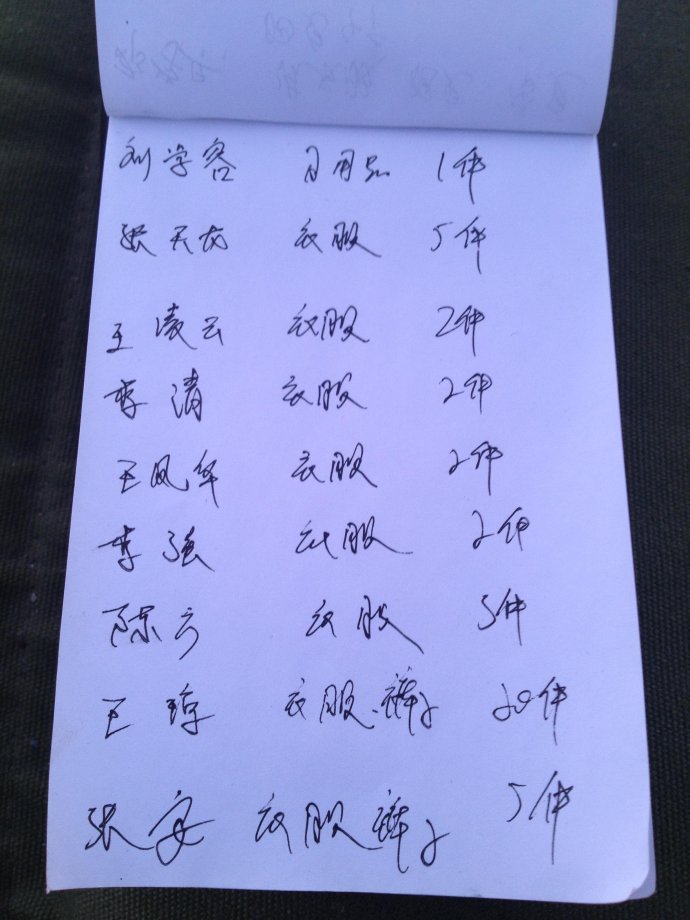 刘学容 日用品 1件
张天龙 衣服 5件
王凌云 衣服 2件
李清 衣服 2件
王凤华 衣服 2件
李强 衣服 2件
陈云 衣服 5件
王琼 衣服、裤子 20件
张安 衣服裤子 5件